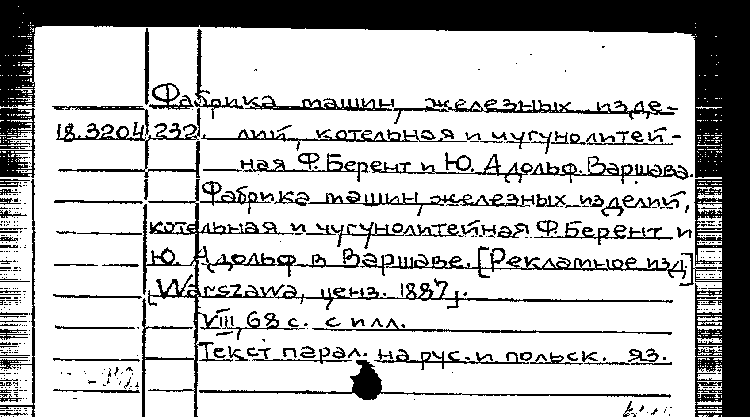 Фабрика машин, железных изде-
18.3204.232. лий, котельная и чугунолитей-
ная Ф. Берент и Ю. Адольф. Варшава.
Фабрика машин, железных изделий,
котельная и чугунолитейная Ф. Берент и
Ю. Адольф в Варшаве. [Рекламное изд.]
[Warszawa, ценз. 1887].
VIII, 68 с. с илл.
Текст парал. на рус. и польск. яз.